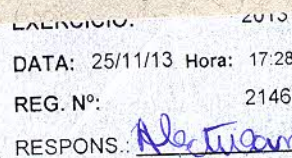 EXERCICIO: 2013
DATA: 25/11/13 Hora: 17:28
REG. Nº: 2146
RESPONS.: